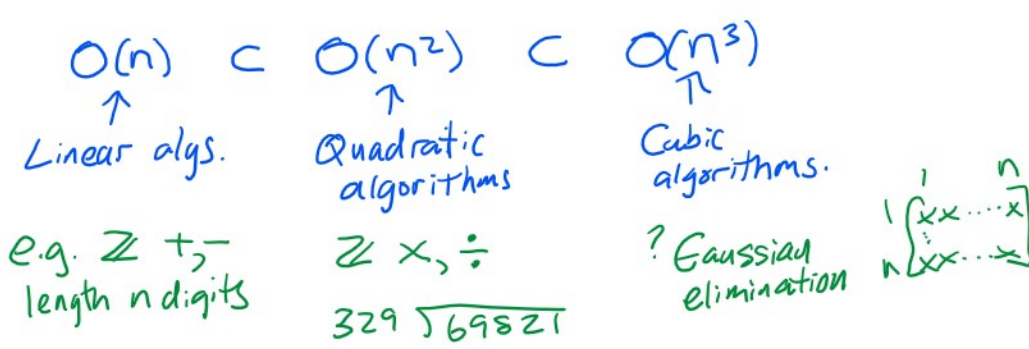 O(n) ⊂ O(n²) ⊂ O(n³)
↑ ↑ ↑
Linear algs. Quadratic algorithms Cubic algorithms.
e.g. ℤ +, - length n digits
ℤ ×, ÷
329 ⟌69821
? Gaussian elimination
1 n
1 [xx....x
⋮
n xx...x]